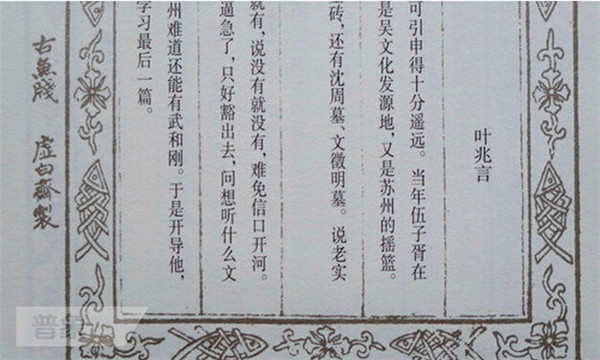 叶兆言
可引申得十分遥远。当年伍子胥在
是吴文化发源地，又是苏州的摇篮。
砖，还有沈周墓、文徵明墓。说老实
就有，说没有就没有，难免信口开河。
逼急了，只好豁出去，问想听什么文
州难道还能有武和刚。于是开导他，
学习最后一篇。
古魚牋 虚白齋製
普象